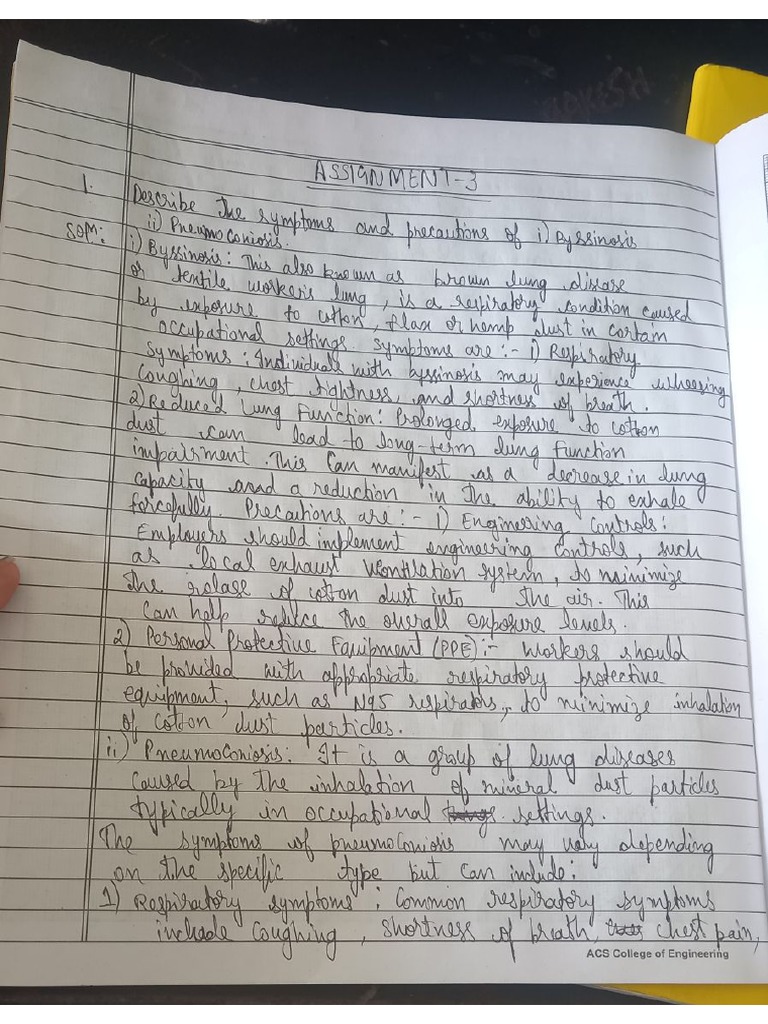 ASSIGNMENT-3
1. Describe the symptoms and precautions of i) Byssinosis
ii) Pneumoconiosis.
Soln: i) Byssinosis: This also known as brown lung disease
or textile worker's lung, is a respiratory condition caused
by exposure to cotton, flax or hemp dust in certain
occupational settings. Symptoms are :- 1) Respiratory
Symptoms: Individuals with byssinosis may experience wheezing
coughing, chest tightness, and shortness of breath.
2) Reduced Lung Function: Prolonged exposure to cotton
dust can lead to long-term lung function
impairment. This can manifest as a decrease in lung
capacity and a reduction in the ability to exhale
forcefully. Precautions are :- 1) Engineering Controls:
Employers should implement engineering controls, such
as local exhaust ventilation system, to minimize
the relase of cotton dust into the air. This
can help reduce the overall exposure levels.
2) Personal Protective Equipment (PPE) :- Workers should
be provided with appropriate respiratory protective
equipment, such as N95 respirators, to minimize inhalation
of cotton dust particles.
ii) Pneumoconiosis: It is a group of lung diseases
caused by the inhalation of mineral dust particles
typically in occupational settings.
The symptoms of pneumoconiosis may vary depending
on the specific type but can include:
1) Respiratory symptoms: Common respiratory symptoms
include coughing, shortness of breath, chest pain,
ACS College of Engineering